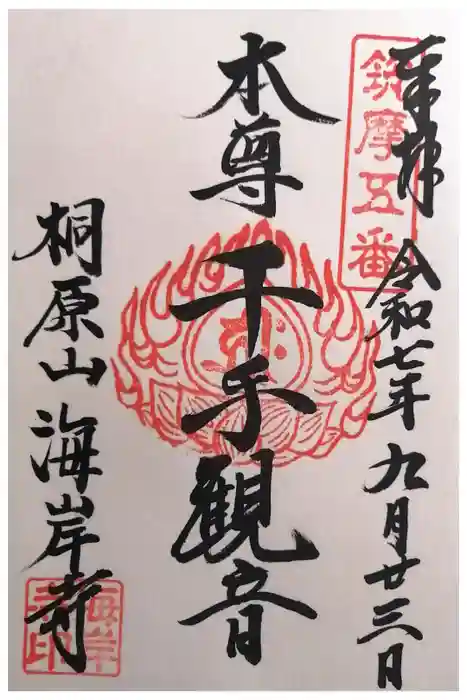 奉拝 令和七年九月廿三日
筑摩五番
本尊千手観音
桐原山海岸寺
海岸
寺印